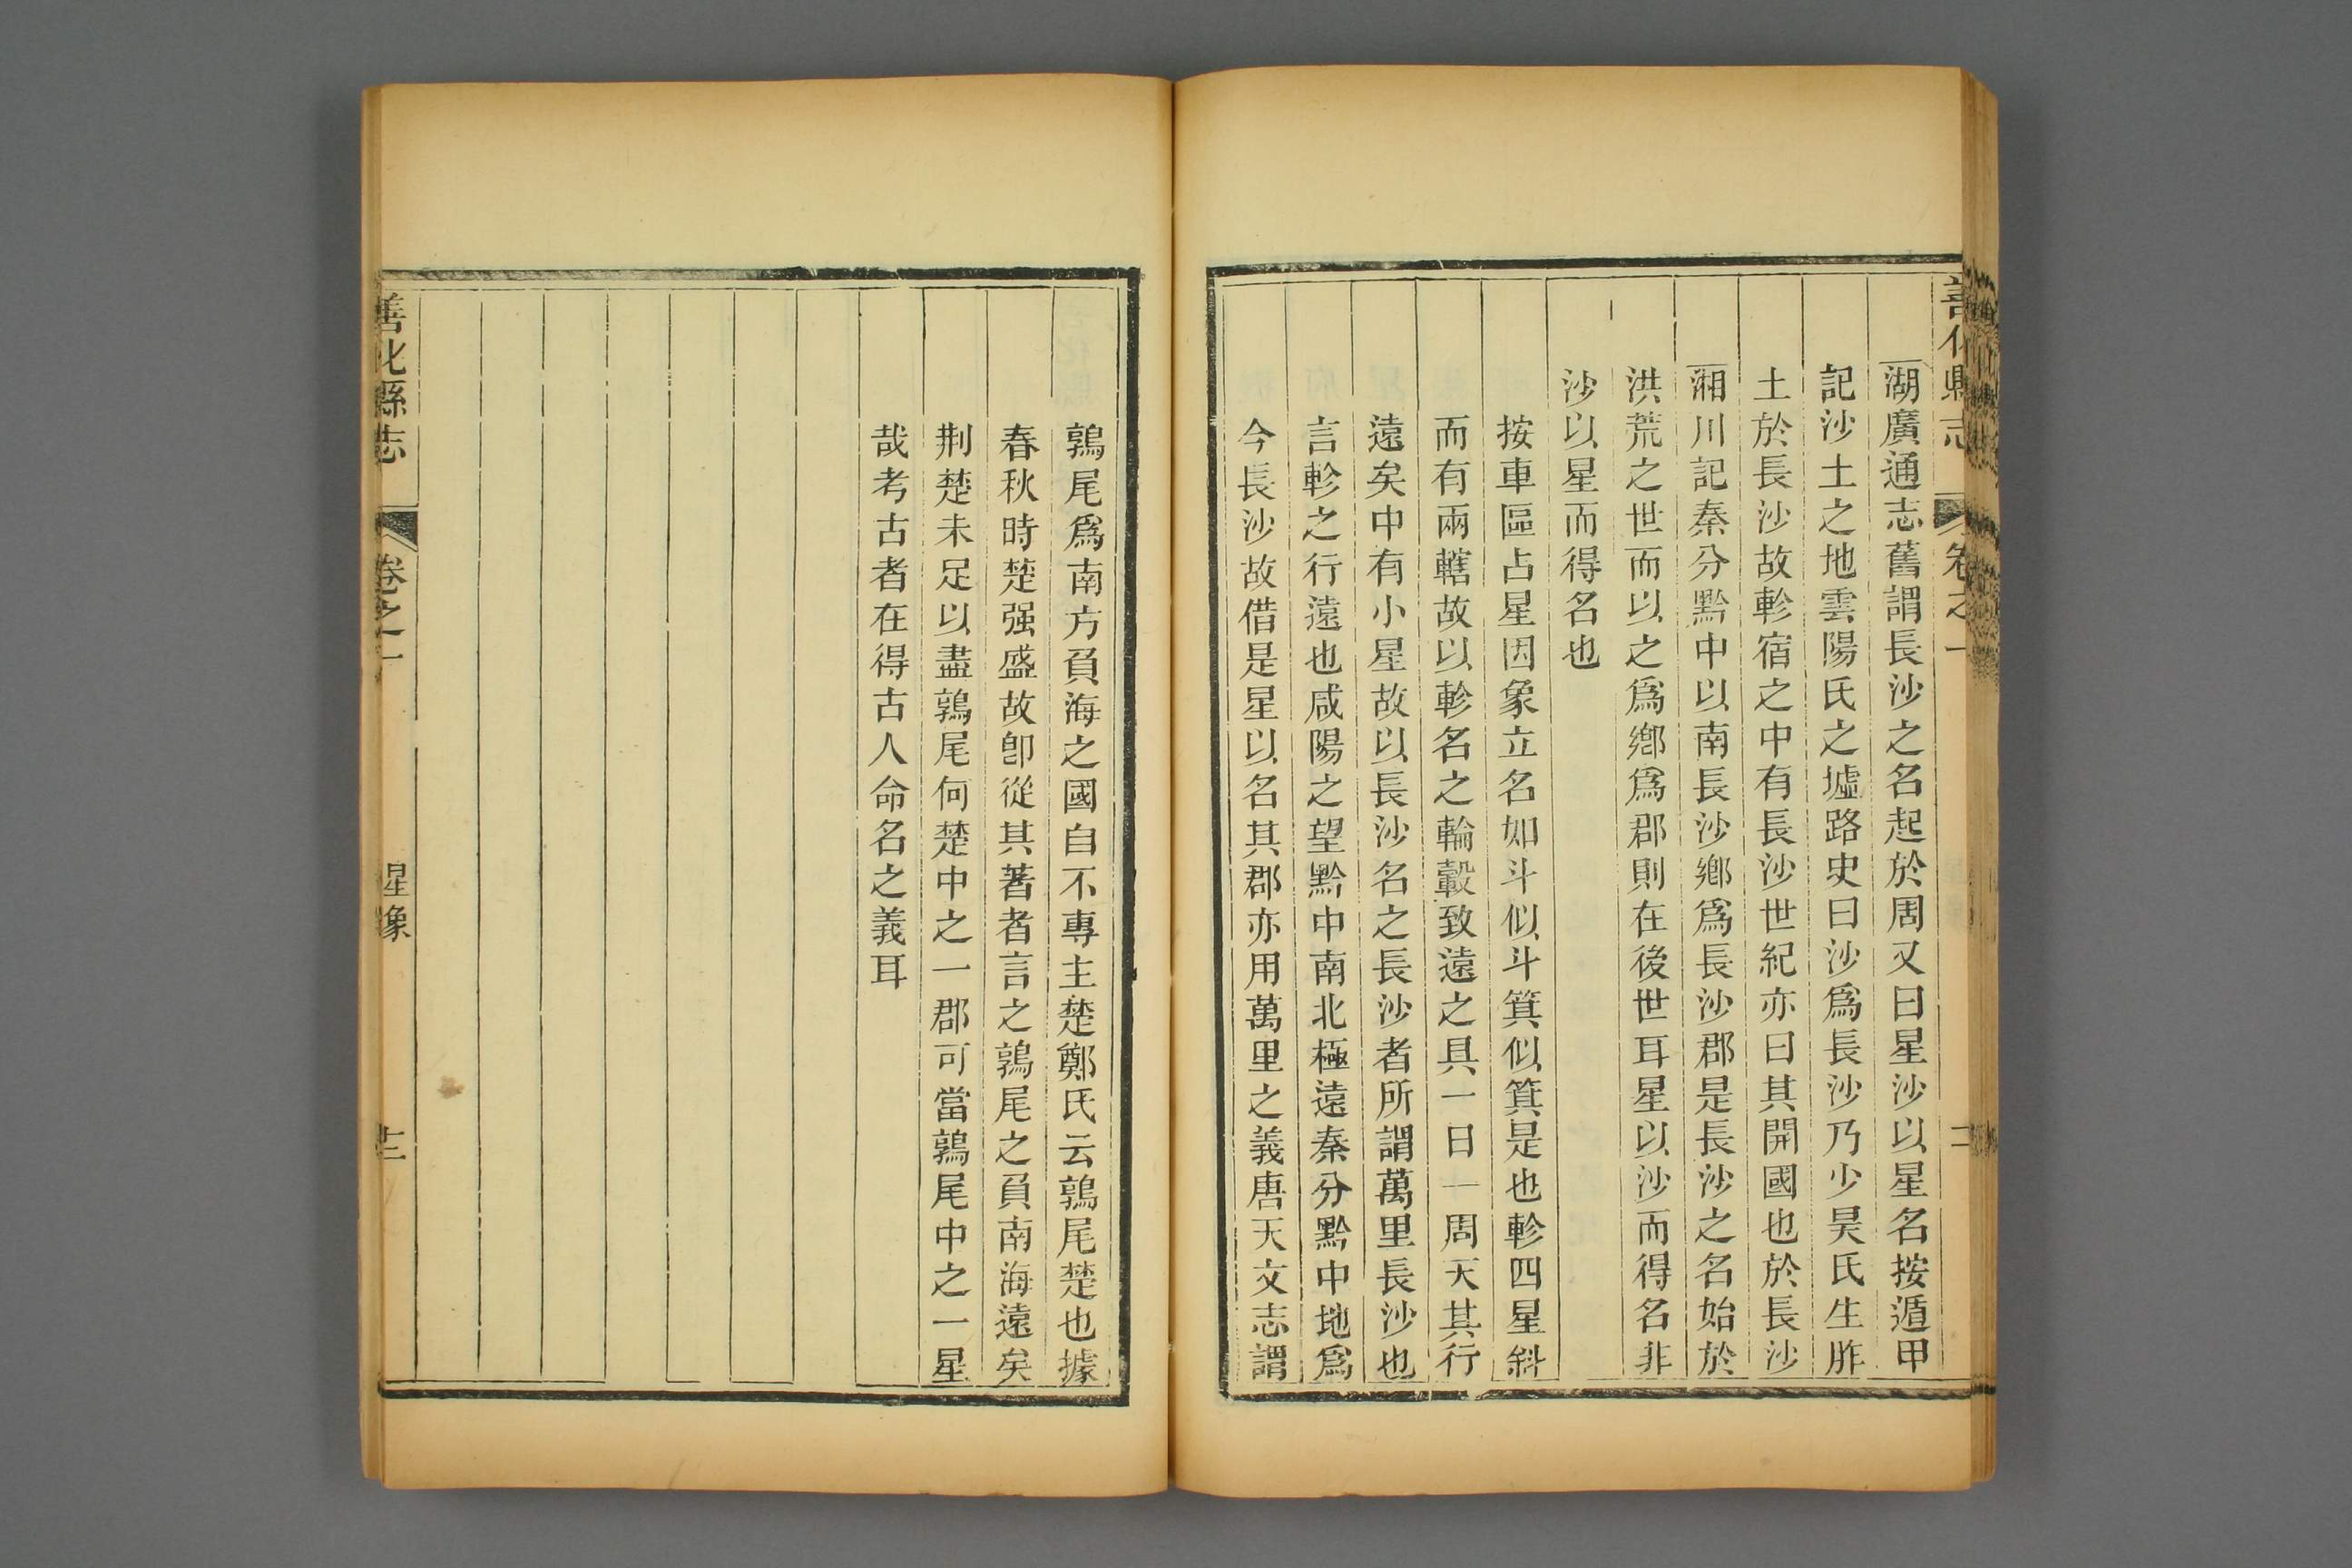 善化縣志 卷之一 二
湖廣通志舊謂長沙之名起於周又曰星沙以星名按遁甲
記沙土之地雲陽氏之墟路史曰沙爲長沙乃少昊氏生胙
土於長沙故軫宿之中有長沙世紀亦曰其開國也於長沙
湘川記秦分黔中以南長沙鄕爲長沙郡是長沙之名始於
洪荒之世而以之爲鄕爲郡則在後世耳星以沙而得名非
沙以星而得名也
按車區占星因象立名如斗似斗箕似箕是也軫四星斜
而有兩轄故以軫名之輪轂致遠之具一日一周天其行
遠矣中有小星故以長沙名之長沙者所謂萬里長沙也
言軫之行遠也咸陽之望黔中南北極遠秦分黔中地爲
今長沙故借是星以名其郡亦用萬里之義唐天文志謂
鶉尾爲南方負海之國自不專主楚鄭氏云鶉尾楚也據
春秋時楚强盛故卽從其著者言之鶉尾之負南海遠矣
荆楚未足以盡鶉尾何楚中之一郡可當鶉尾中之一星
哉考古者在得古人命名之義耳
善化縣志 卷之一 星象